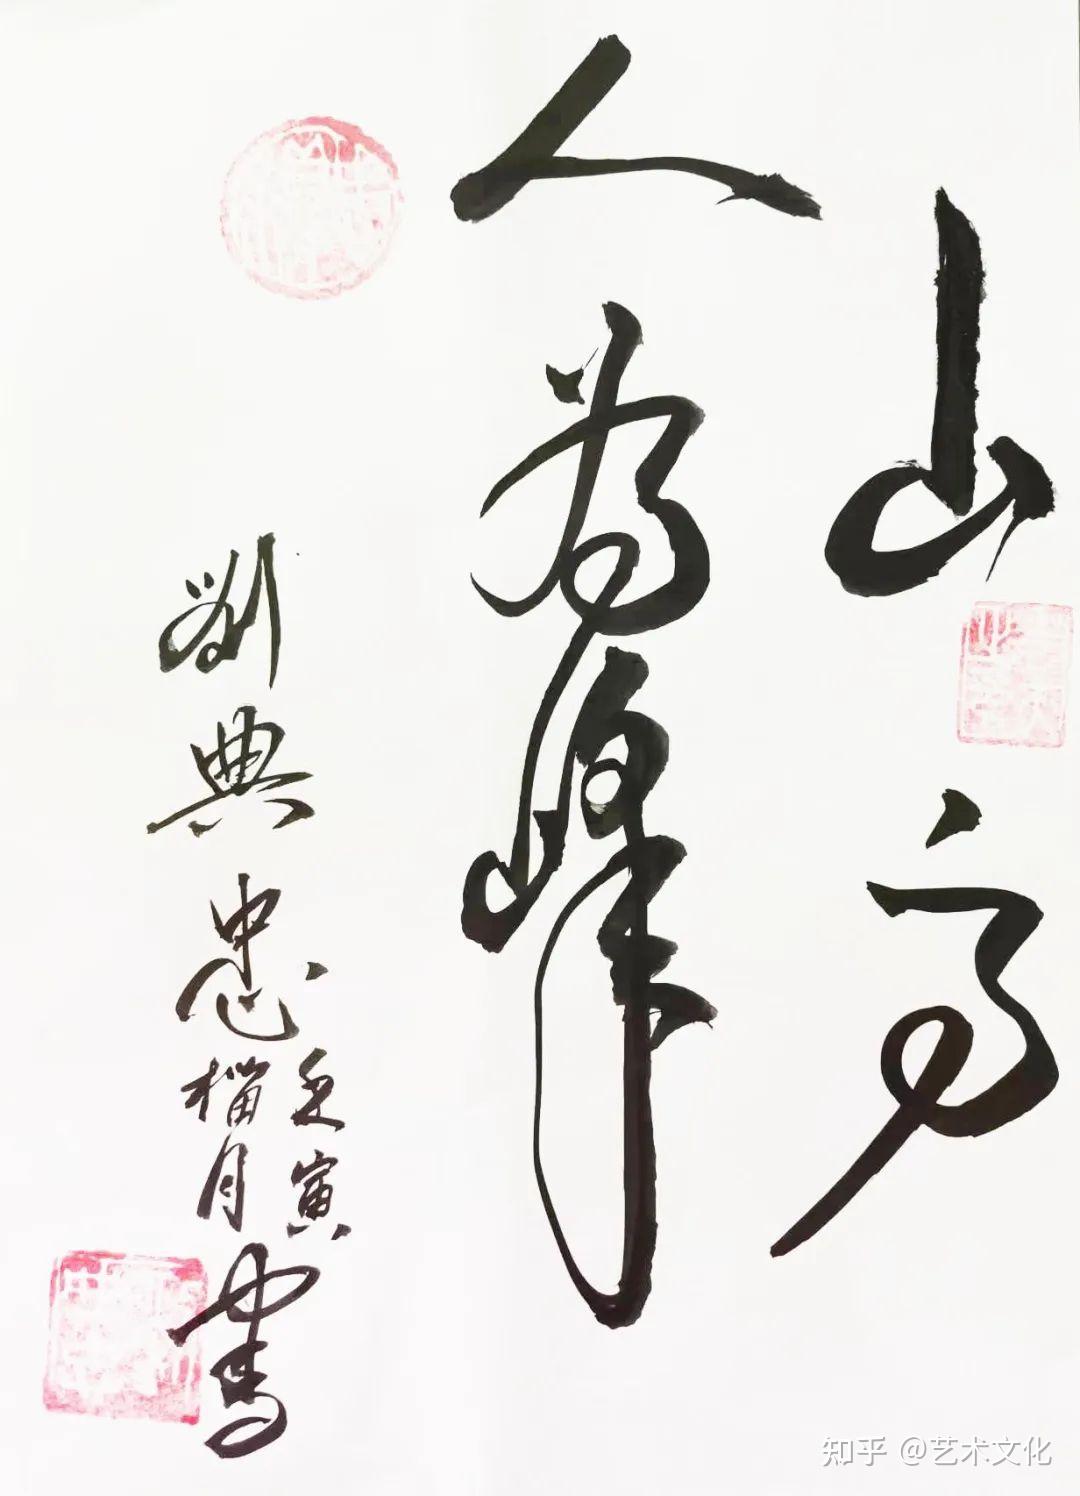 山高
人为峰
劉典忠
壬寅
榴月
書
知乎 @艺术文化